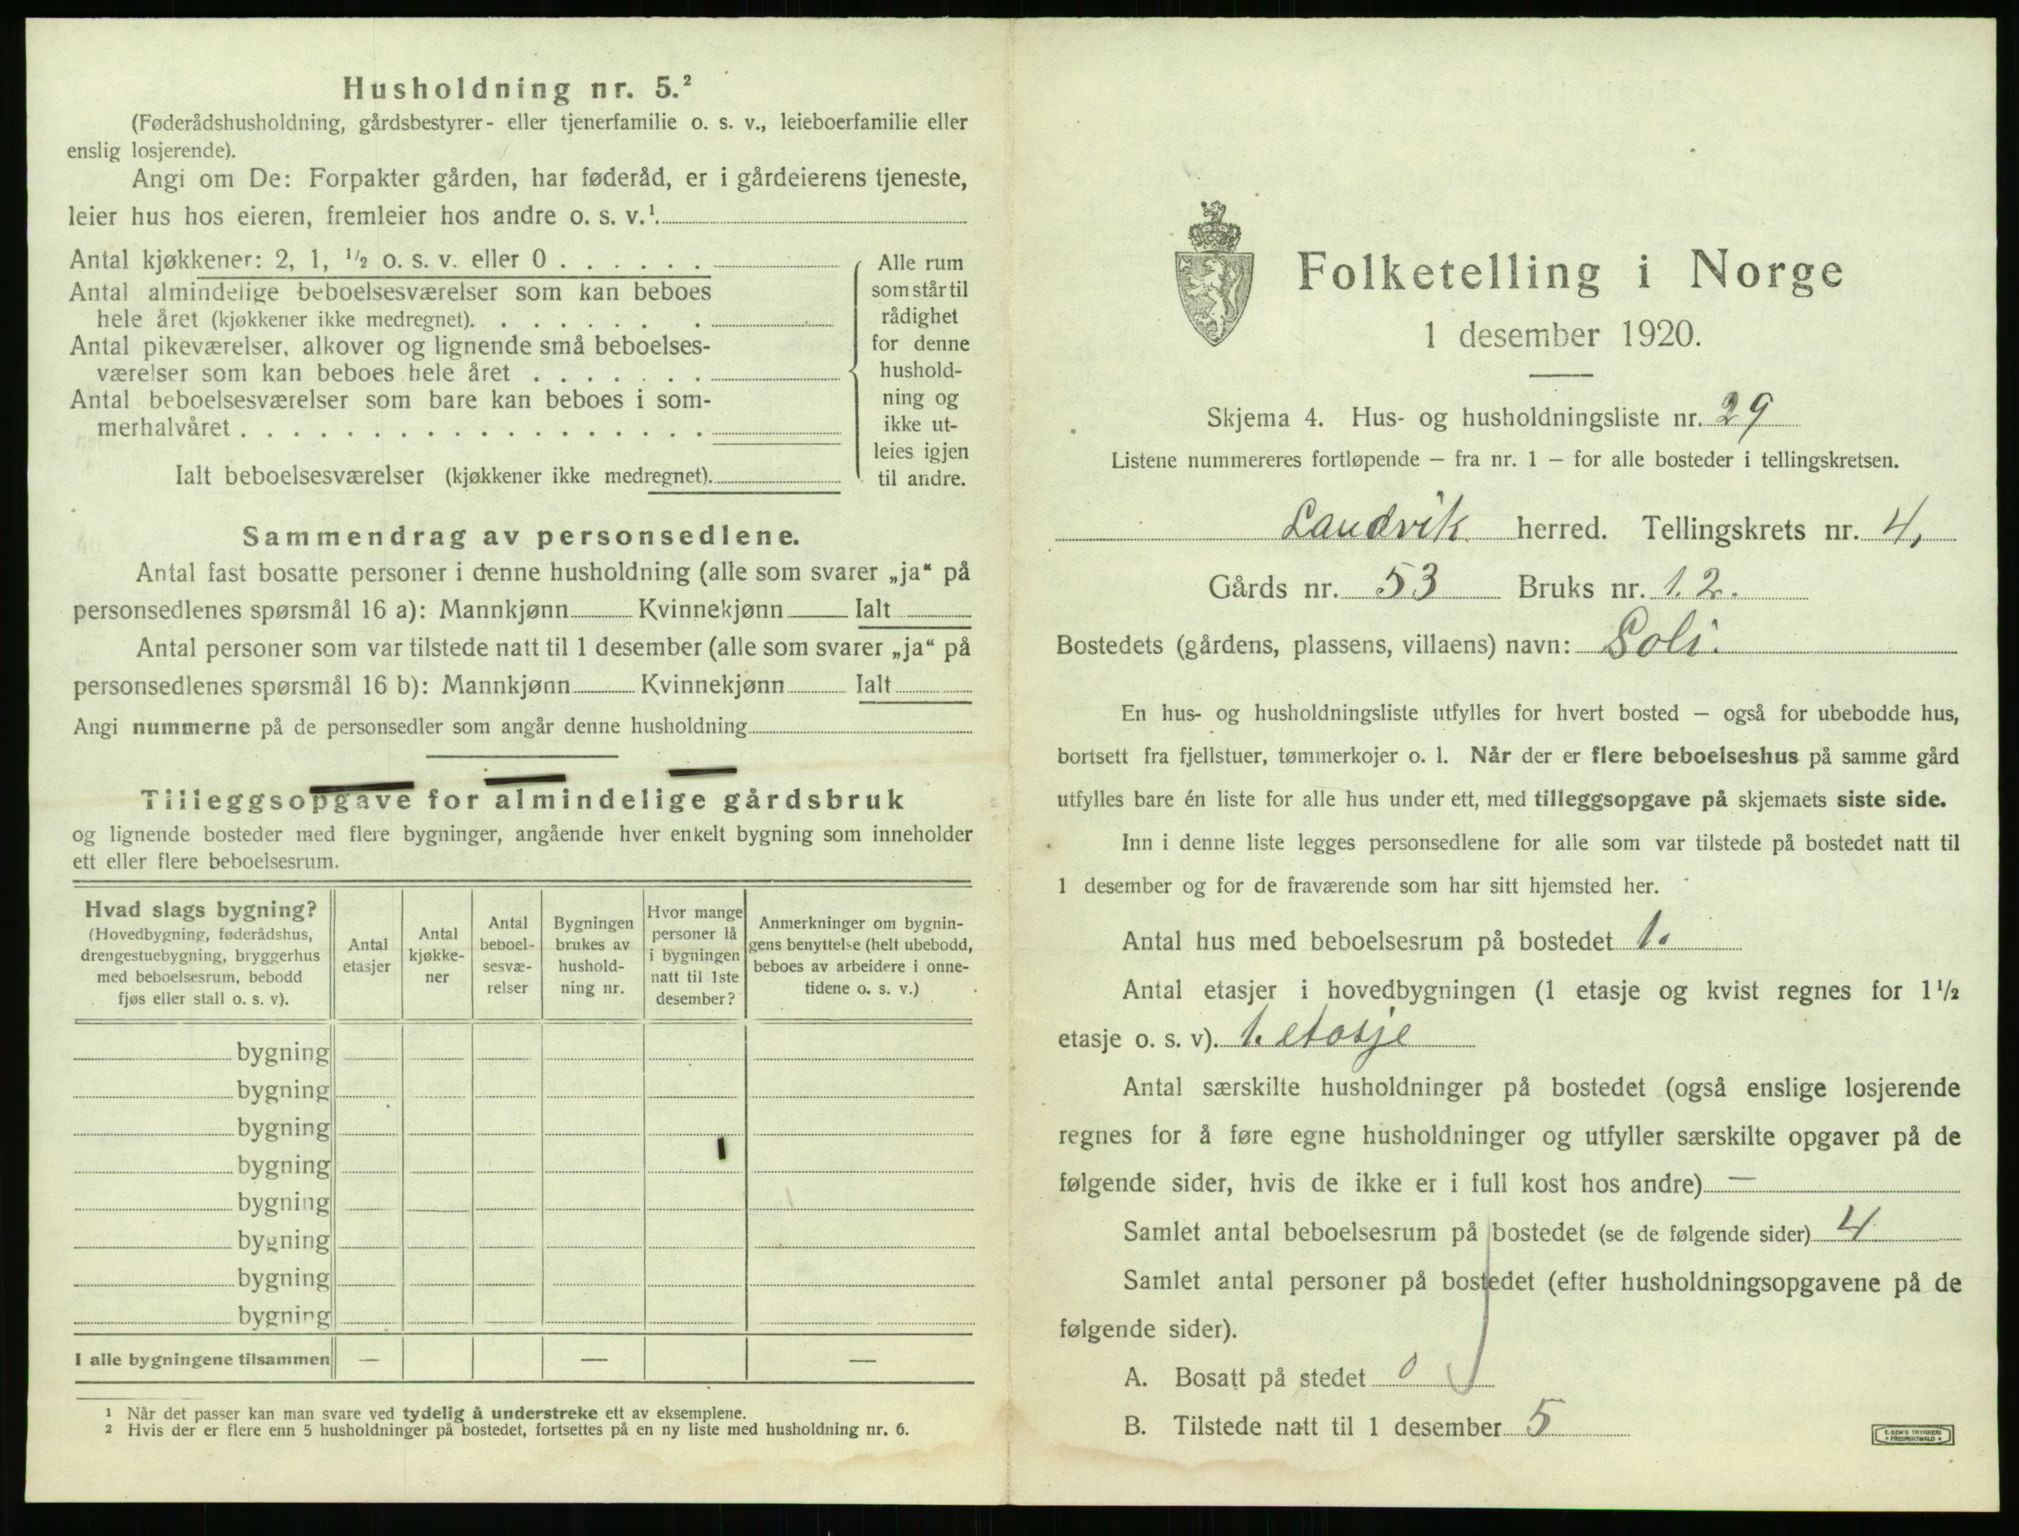 Husholdning nr. 5.²
(Føderådshusholdning, gårdsbestyrer- eller tjenerfamilie o. s. v., leieboerfamilie eller
enslig losjerende).
Angi om De: Forpakter gården, har føderåd, er i gårdeierens tjeneste,
leier hus hos eieren, fremleier hos andre o. s. v.¹
Antal kjøkkener: 2, 1, ½ o. s. v. eller 0 . . . . . .
Antal almindelige beboelsesværelser som kan beboes
hele året (kjøkkener ikke medregnet). . . . . . . .
Antal pikeværelser, alkover og lignende små beboelses-
værelser som kan beboes hele året . . . . . . .
Antal beboelsesværelser som bare kan beboes i som-
merhalvåret . . . . . . . . . . . . . . . . . .
Ialt beboelsesværelser (kjøkkener ikke medregnet).
Alle rum
som står til
rådighet
for denne
hushold-
ning og
ikke ut-
leies igjen
til andre.
Sammendrag av personsedlene.
Antal fast bosatte personer i denne husholdning (alle som svarer „ja“ på
personsedlenes spørsmål 16 a): Mannkjønn Kvinnekjønn Ialt
Antal personer som var tilstede natt til 1 desember (alle som svarer „ja“ på
personsedlenes spørsmål 16 b): Mannkjønn Kvinnekjønn Ialt
Angi nummerne på de personsedler som angår denne husholdning
Tilleggsopgave for almindelige gårdsbruk
og lignende bosteder med flere bygninger, angående hver enkelt bygning som inneholder
ett eller flere beboelsesrum.
Hvad slags bygning?
(Hovedbygning, føderådshus,
drengestuebygning, bryggerhus
med beboelsesrum, bebodd
fjøs eller stall o. s. v).
Antal
etasjer
Antal
kjøkke-
ner
Antal
beboel-
sesvæ-
relser
Bygningen
brukes av
hushold-
ning nr.
Hvor mange
personer lå
i bygningen
natt til 1ste
desember?
Anmerkninger om bygnin-
gens benyttelse (helt ubebodd,
beboes av arbeidere i onne-
tidene o. s. v.)
bygning
bygning
bygning
bygning
bygning
bygning
bygning
bygning
I alle bygningene tilsammen — — —
¹ Når det passer kan man svare ved tydelig å understreke ett av eksemplene.
² Hvis der er flere enn 5 husholdninger på bostedet, fortsettes på en ny liste med husholdning nr. 6.
Folketelling i Norge
1 desember 1920.
Skjema 4. Hus- og husholdningsliste nr. 29
Listene nummereres fortløpende – fra nr. 1 – for alle bosteder i tellingskretsen.
Landvik herred. Tellingskrets nr. 4.
Gårds nr. 53 Bruks nr. 12.
Bostedets (gårdens, plassens, villaens) navn: Soli.
En hus- og husholdningsliste utfylles for hvert bosted – også for ubebodde hus,
bortsett fra fjellstuer, tømmerkojer o. l. Når der er flere beboelseshus på samme gård
utfylles bare én liste for alle hus under ett, med tilleggsopgave på skjemaets siste side.
Inn i denne liste legges personsedlene for alle som var tilstede på bostedet natt til
1 desember og for de fraværende som har sitt hjemsted her.
Antal hus med beboelsesrum på bostedet 1.
Antal etasjer i hovedbygningen (1 etasje og kvist regnes for 1½
etasje o. s. v). 1. etasje
Antal særskilte husholdninger på bostedet (også enslige losjerende
regnes for å føre egne husholdninger og utfyller særskilte opgaver på de
følgende sider, hvis de ikke er i full kost hos andre) —
Samlet antal beboelsesrum på bostedet (se de følgende sider) 4
Samlet antal personer på bostedet (efter husholdningsopgavene på de
følgende sider).
A. Bosatt på stedet 0
B. Tilstede natt til 1 desember 5